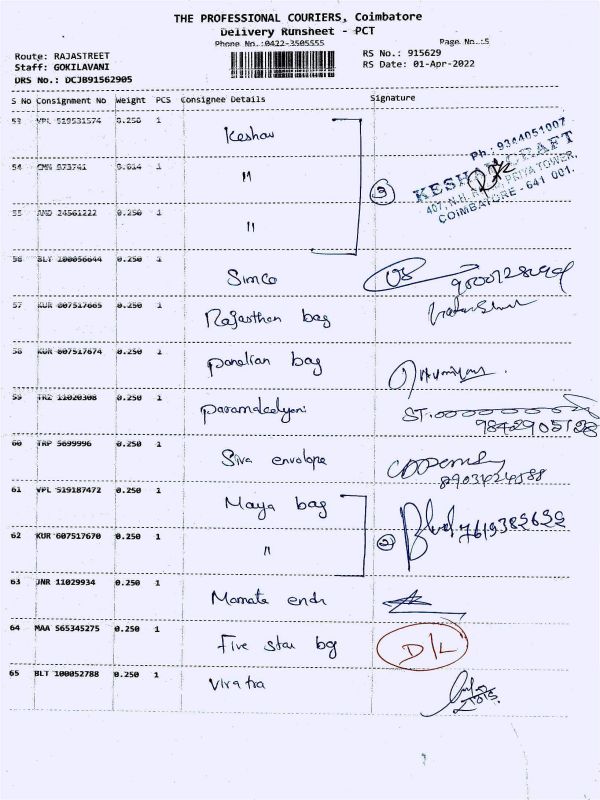 THE PROFESSIONAL COURIERS, Coimbatore
Delivery Runsheet - PCT
Phone No.:0422-3505555
Page No.:5
Route: RAJASTREET
RS No.: 915629
Staff: GOKILAVANI
RS Date: 01-Apr-2022
DRS No.: DCJB91562905
S No Consignment No Weight PCS Consignee Details Signature
53 VPL 519531574 0.250 1 Keshav
Ph.: 9344051007
KESHAV CRAFT
407, N.H. PRIYA TOWER,
COIMBATORE - 641 001.
54 CMN 573741 0.614 1 "
3
55 AMD 24561222 0.250 1 "
56 BLT 100056644 0.250 1 Simco
57 KUR 607517665 0.250 1 Rajasthan bag
58 KUR 607517674 0.250 1 pandian bag
59 TRZ 11020308 0.250 1
9842905128
60 TRP 5699996 0.250 1 Siva envelope
61 VPL 519187472 0.250 1 Maya bag
7619382632
62 KUR 607517670 0.250 1 "
2
63 JNR 11029934 0.250 1 Mamata
64 MAA 565345275 0.250 1 Five star bg D/L
65 BLT 100052788 0.250 1